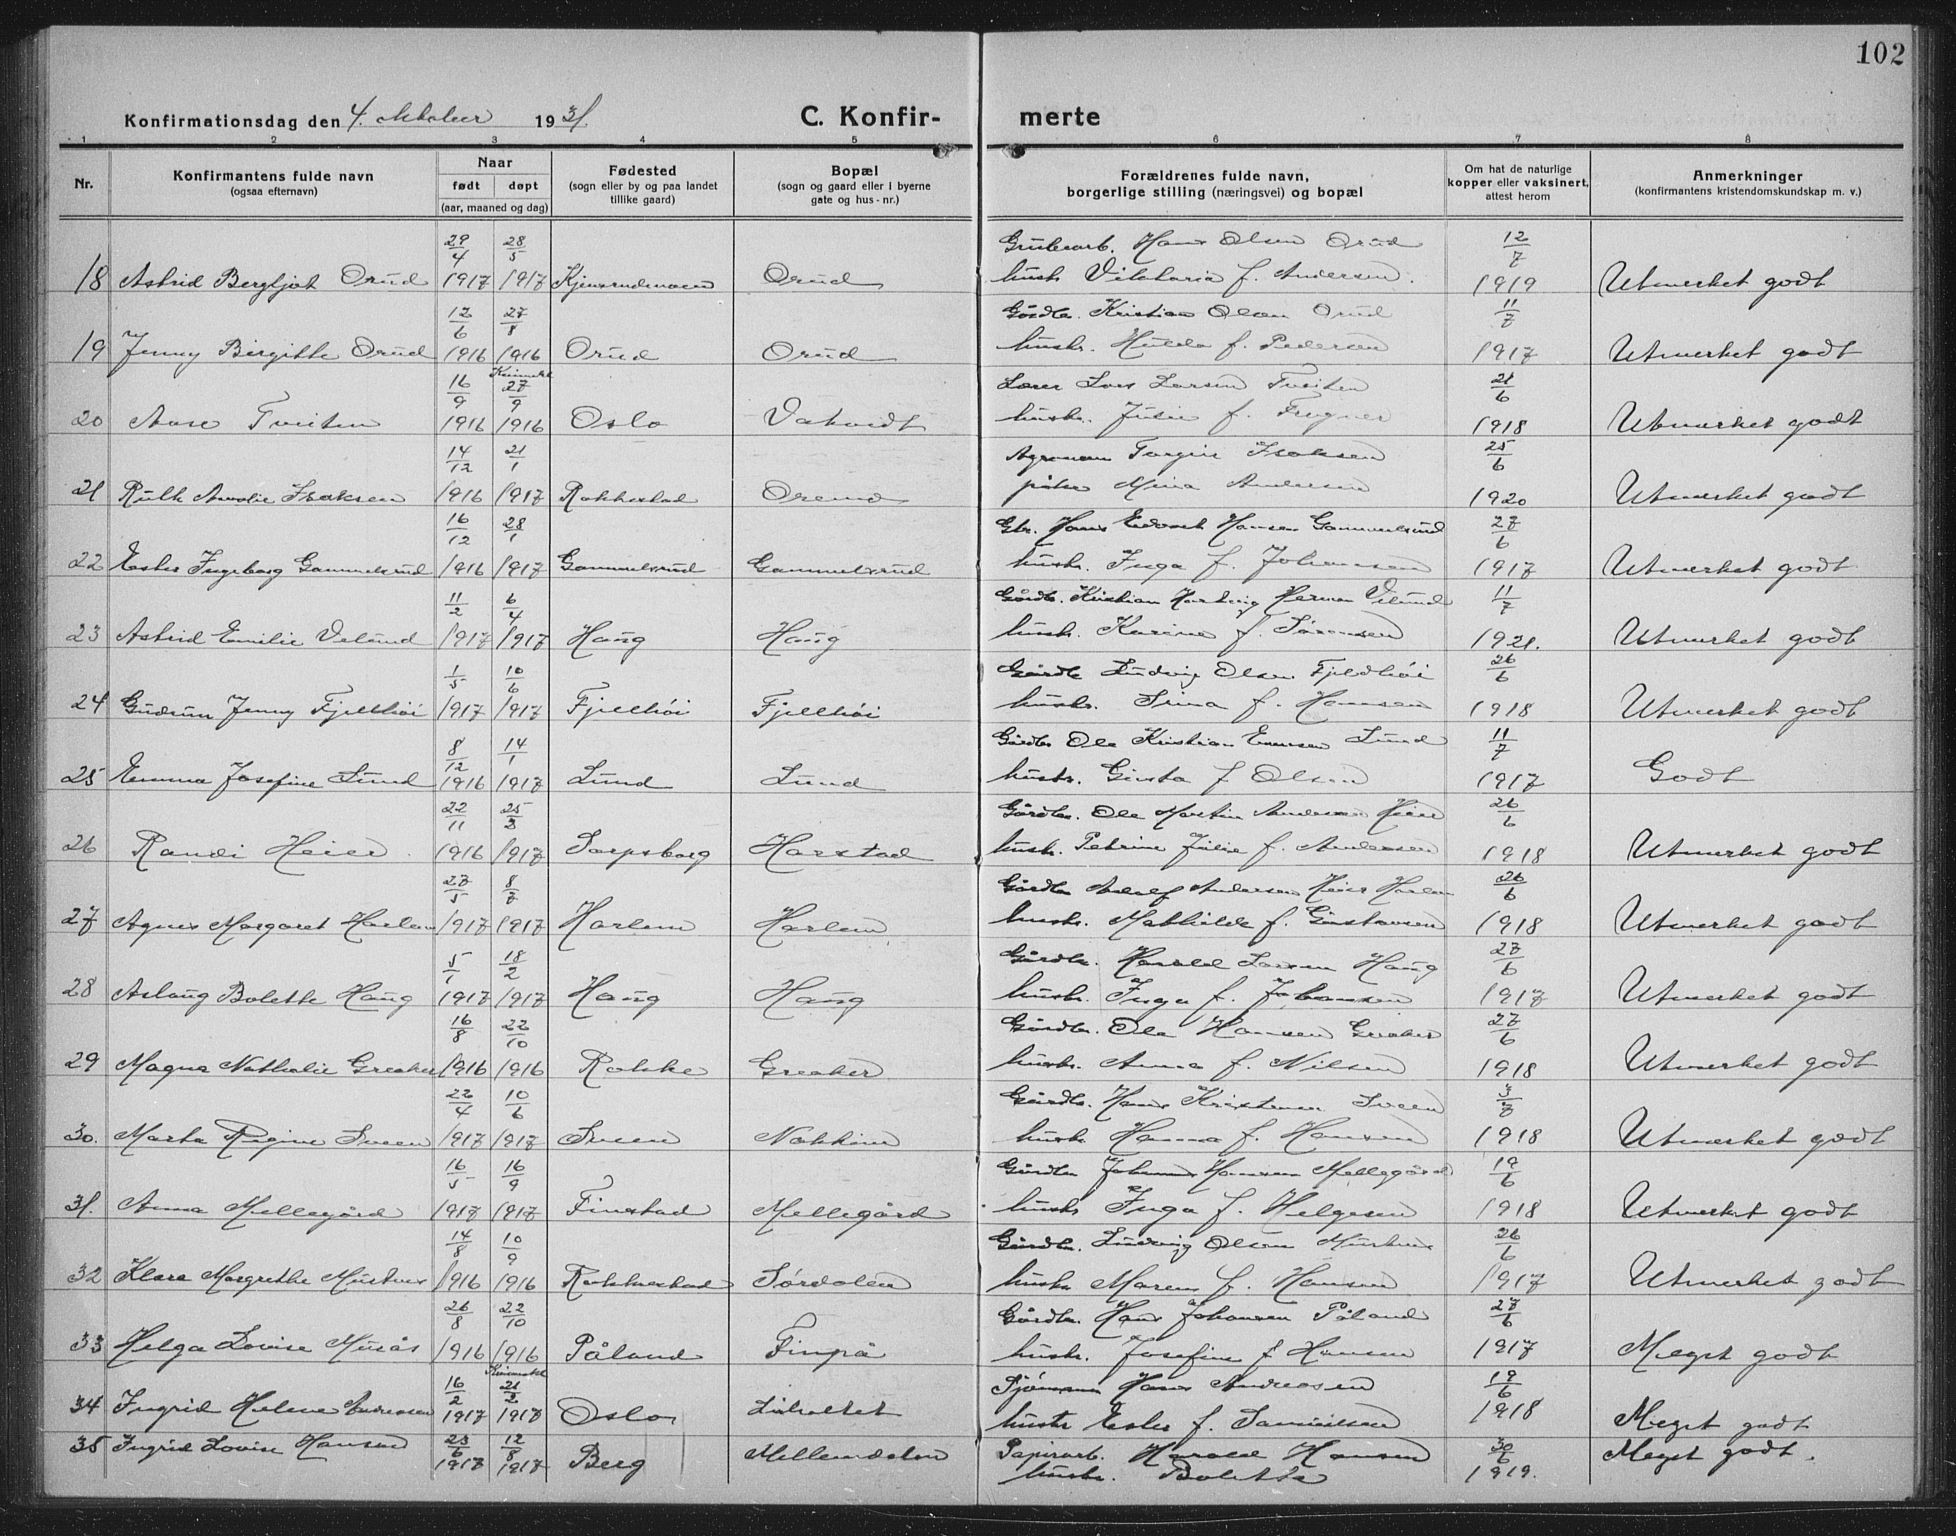 102
Konfirmationsdag den 4. oktober 1931
C. Konfirmerte
1 2 3 4 5 6 7 8
Nr.
Konfirmantens fulde navn
(ogsaa efternavn)
Naar
født døpt
(aar, maaned og dag)
Fødested
(sogn eller by og paa landet
tillike gaard)
Bopæl
(sogn og gaard eller i byerne
gate og hus-nr.)
Forældrenes fulde navn,
borgerlige stilling (næringsvei) og bopæl
Om hat de naturlige
kopper eller vaksinert,
attest herom
Anmerkninger
(konfirmantens kristendomskundskap m. v.)
29/4 28/5 Grubearb. Hans Olsen Orud 12/7
18 Astrid Bergljot Orud 1917 1917 Orud hustr. Viktoria f. Andersen 1919 Utmerket godt
12/6 27/8 Gårdbr. Kristian Olsen Orud 11/7
19 Jenny Birgitte Orud 1916 1916 Orud Orud hustr. Hulda f. Pedersen 1917 Utmerket godt
16/9 27/9 Lærer Lars Larsen Tveiten 21/6
20 Aase Tveiten 1916 1916 Oslo hustr. f. 1918 Utmerket godt
14/12 21/1 Agronom Isaksen 25/6
21 Ruth Amalie Isaksen 1916 1917 Rokkestad Mina Andersen 1920 Utmerket godt
16/12 28/1 Gbr. Hans Edvart Hansen Gammelsrud 27/6
22 Ester Ingeborg Gammelsrud 1916 1917 Gammelsrud Gammelsrud hustr. Inga f. Johansen 1917 Utmerket godt
11/2 6/4 Gårdb. Kristian Hartvig Herman Velund 11/7
23 Astrid Emilie Velund 1917 1917 Haug Haug hustr. Karine f. Sørensen 1921. Utmerket godt
1/5 10/6 Gårdb. Ludvig Olsen Fjeldhøi 26/6
24 Gudrun Jenny Fjellhøi 1917 1917 Fjellhøi Fjellhøi hustr. f. Hansen 1918 Utmerket godt
8/12 14/1 Gårdbr Ole Kristian Evensen Lund 11/7
25 Emma Josefine Lund 1916 1917 Lund Lund hustr. f Olsen 1917 Godt
22/11 25/3 Gårdbr. Ole Martin Andersen Heier 26/6
26 Randi Heier 1916 1917 Sarpsborg Harstad hustr. Petrine Julie f. Andersen 1918 Utmerket godt
27/5 8/7 Gårdbr Adolf Andersen Heier Harlem 26/6
27 Agnes Margaret Harlem 1917 1917 Harlem Harlem hustr. Mathilde f. Gustavsen 1918 Utmerket godt
5/1 18/2 Gårdbr. Harald Larsen Haug 27/6
28 Aslaug Bolette Haug 1917 1917 Haug Haug hustr. Inga f. Johansen 1917 Utmerket godt
16/8 22/10 Gårdbr. Ole Hansen Greaker 27/6
29 Magna Nathalie Greaker 1916 1916 Rokke Greaker hustr. Anna f. Nilsen 1918 Utmerket godt
22/4 10/6 Gårdbr. Hans Kristensen Sveen 3/7
30. Marta Regine Sveen 1917 1917 Sveen hustr. Hanna f. Hansen 1918 Utmerket godt
16/5 16/9 Gårdbr Johannes Hansen Mellegård 19/6
31. Anna Mellegård 1917 1917 Finstad Mellegård hustr Inga f. Helgesen 1918 Utmerket godt
14/8 10/9 Gårdbr. Ludvig Olsen 26/6
32 Klara Margrethe 1916 1916 Rokkestad Sørdalen hustr Maren f. Hansen 1917 Utmerket godt
26/8 22/10 Gårdbr. Hans Johansen Påland 27/6
33 Helga Lovise Musås 1916 1916 Påland hustr. Josefine f Hansen 1917 Meget godt
16/2 21/2 Sjømann Hans Andreasen 19/6
34 Ingrid Helene Andreasen 1917 1917 Oslo hustr Ester f. Samuelsen 1918 Meget godt
35 Ingrid Lovise Hansen 23/6 12/8 Mellemdalen Papirarb. Harald Hansen 30/6 Meget godt.
1917 1917 Berg hustr. Bolette 1919.